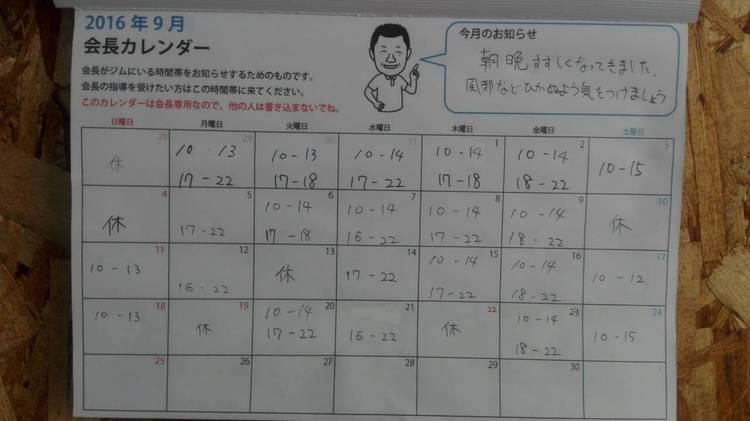 2016 年 9 月
会長カレンダー
会長がジムにいる時間帯をお知らせするためのものです。
会長の指導を受けたい方はこの時間帯に来てください。
このカレンダーは会長専用なので、他の人は書き込まないでね。
今月のお知らせ
朝晩すずしくなってきました。
風邪などひかぬよう気をつけましょう
日曜日 月曜日 火曜日 水曜日 木曜日 金曜日 土曜日
28 29 30 31 1 2 3
休 10-13 10-13 10-14 10-14 10-14 10-15
17-22 17-18 17-22 17-18 18-22
4 5 6 7 8 9 10
休 10-14 10-14 10-14 10-14 休
17-22 17-18 16-22 17-22 18-22
11 12 13 14 15 16 17
10-13 休 17-22 10-14 10-14 10-12
16-22 17-22 18-22
18 19 20 21 22 23 24
10-13 休 10-14 休 10-14 10-15
17-22 16-22 18-22
25 26 27 28 29 30 1